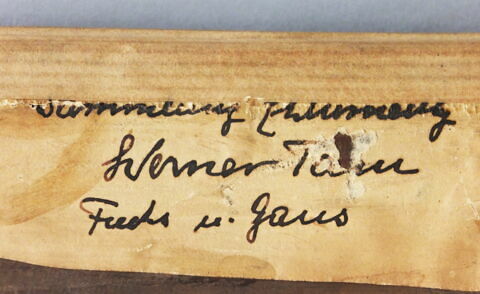 Sammlung
Werner Tam
Fuchs u. Gans